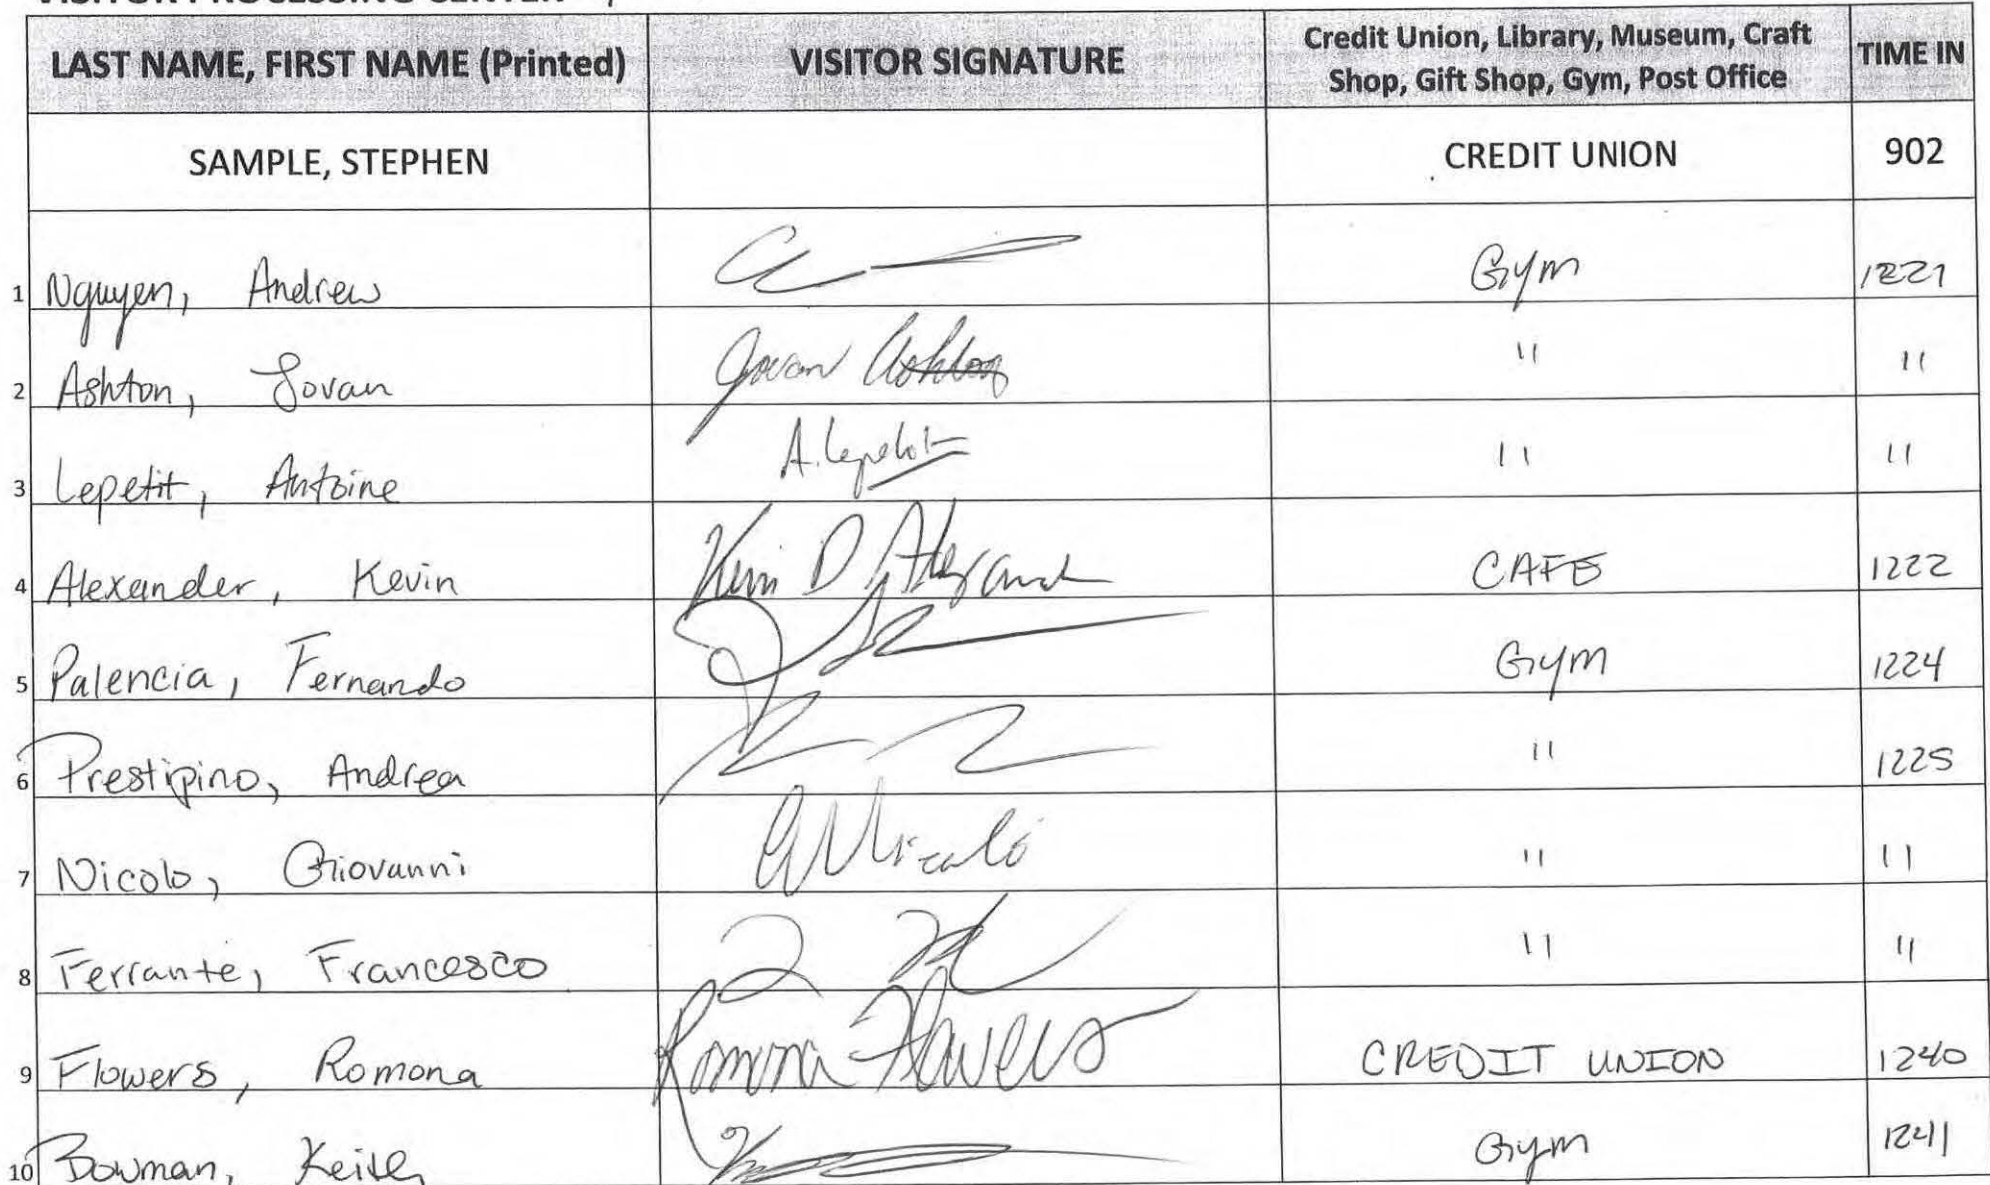 VISITOR PROCESSING CENTER
LAST NAME, FIRST NAME (Printed) VISITOR SIGNATURE Credit Union, Library, Museum, Craft Shop, Gift Shop, Gym, Post Office TIME IN
SAMPLE, STEPHEN CREDIT UNION 902
1 Nguyen, Andrew Gym 1221
2 Ashton, Jovan Jovan Ashton " "
3 Lepetit, Antoine A. Lepetit " "
4 Alexander, Kevin Kevin D Alexander CAFE 1222
5 Palencia, Fernando Gym 1224
6 Prestipino, Andrea " 1225
7 Nicolo, Giovanni G Nicolò " "
8 Ferrante, Francesco " "
9 Flowers, Romona Romona Flowers CREDIT UNION 1240
10 Bowman, Keith Gym 1241